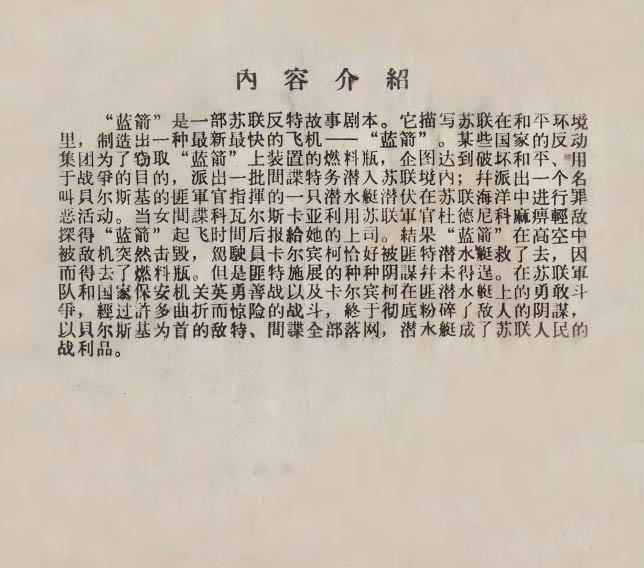 內容介紹
“蓝箭”是一部苏联反特故事剧本。它描写苏联在和平环境
里，制造出一种最新最快的飞机——“蓝箭”。某些国家的反动
集团为了窃取“蓝箭”上装置的燃料瓶，企图达到破坏和平、用
于战爭的目的，派出一批間諜特务潜入苏联境内；幷派出一个名
叫貝尔斯基的匪軍官指揮的一只潜水艇潜伏在苏联海洋中进行罪
恶活动。当女間諜科瓦尔斯卡亚利用苏联軍官杜德尼科麻痹輕敌
探得“蓝箭”起飞时間后报給她的上司。結果“蓝箭”在高空中
被敌机突然击毁，駕駛員卡尔宾柯恰好被匪特潜水艇救了去，因
而得去了燃料瓶。但是匪特施展的种种阴謀幷未得逞。在苏联軍
队和国家保安机关英勇善战以及卡尔宾柯在匪潜水艇上的勇敢斗
爭，經过許多曲折而惊险的战斗，終于彻底粉碎了敌人的阴謀，
以貝尔斯基为首的敌特、間諜全部落网，潜水艇成了苏联人民的
战利品。